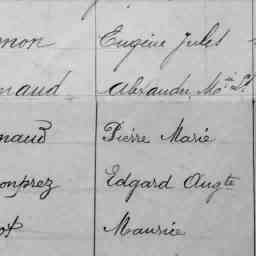 mon Eugène Jules
naud Alexandre M^ie
naud Pierre Marie
onprez Edgard Aug^te
ot Maurice